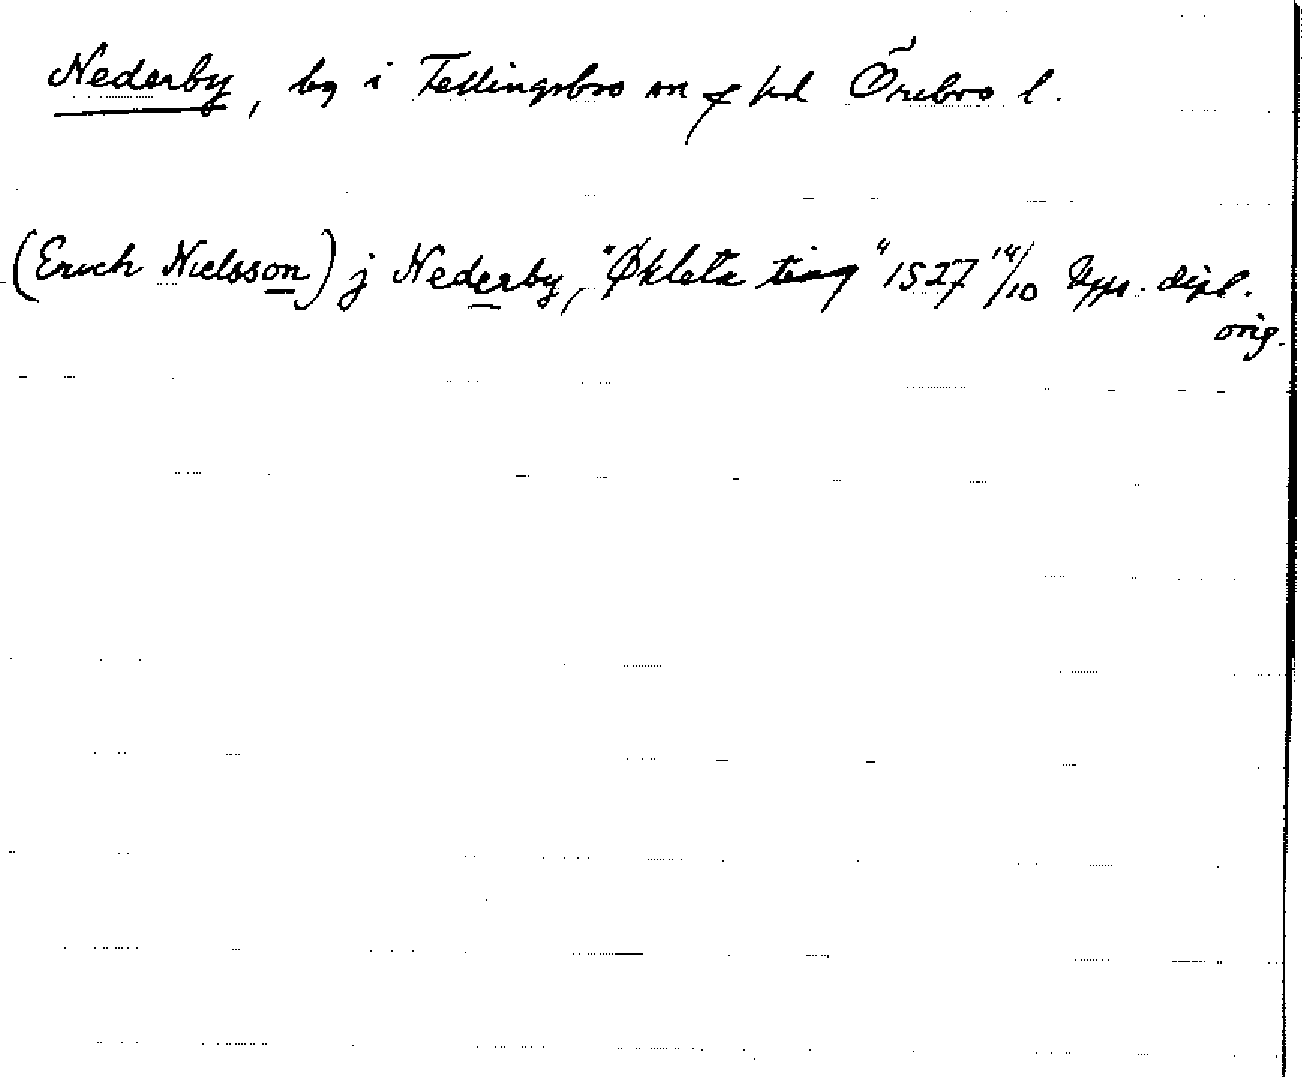 Nederby, by i Fellingsbro sn o hd Örebro l.
(Erich Nielsson) j Nederby, "Økleta ting" 1527 14/10 Upps. dipl.
orig.